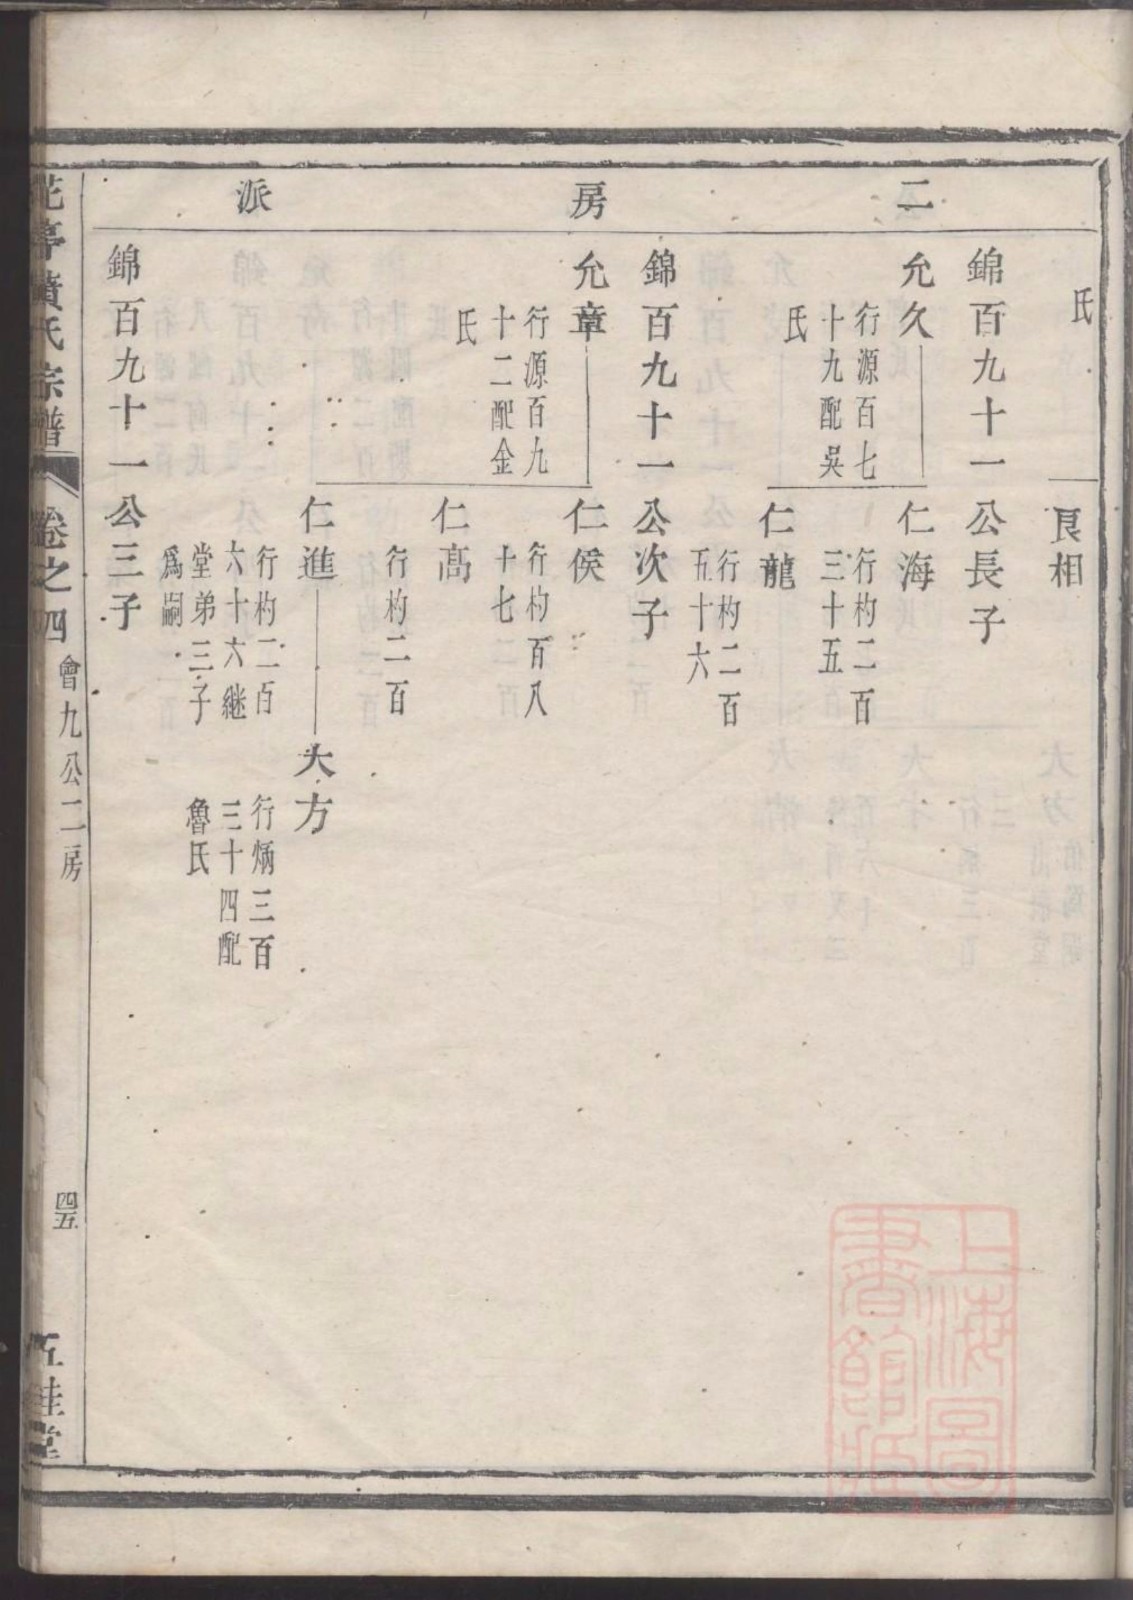 二房派
氏
良相
錦百九十一公長子
允久
行源百七
十九配吳
氏
仁海
行杓二百
三十五
仁龍
行杓二百
五十六
錦百九十一公次子
允章
行源百九
十二配金
氏
仁侯
行杓百八
十七
仁高
行杓二百
仁進
行杓二百
六十六継
堂弟三子
爲嗣
大方
行炳三百
三十四配
魯氏
錦百九十一公三子
花亭黄氏宗譜
卷之四
會九公二房
四五
五桂堂
上海圖
書館藏